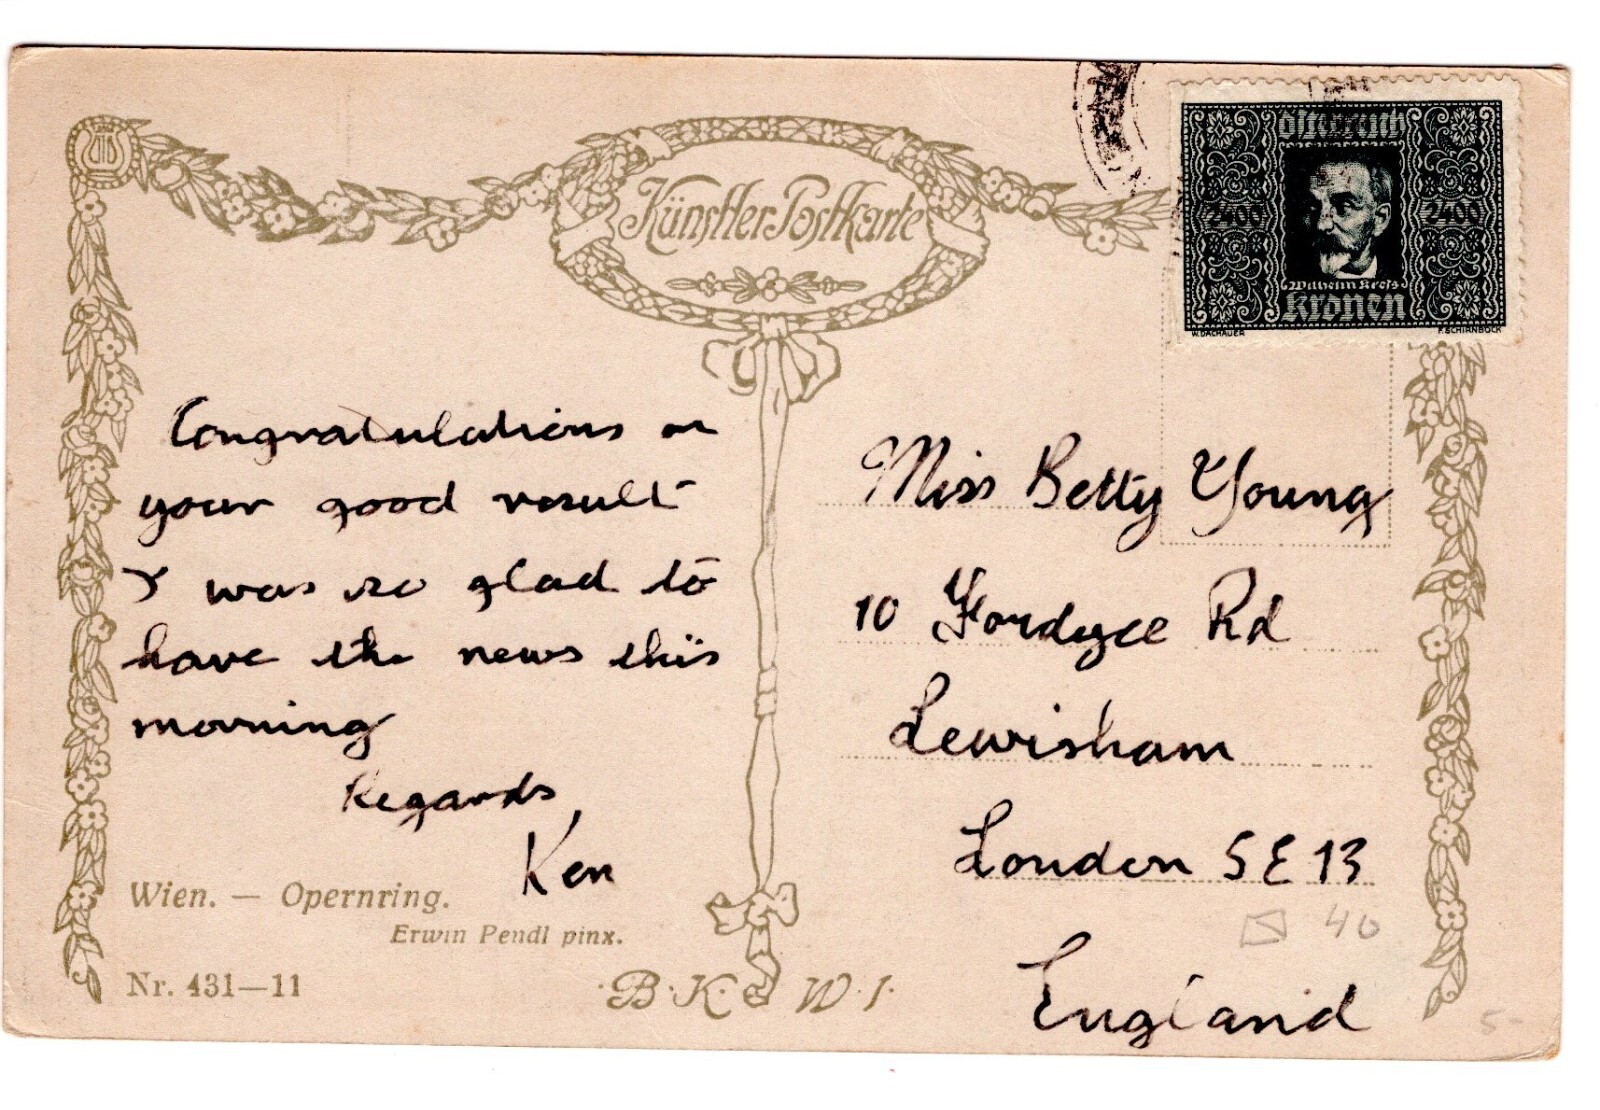 Künstler Postkarte
Österreich
2400 2400
Wilhelm Kreß
Kronen
W. DACHAUER F. SCHIRNBÖCK
Congratulations on
your good result
I was so glad to
have the news this
morning
Regards
Ken
Miss Betty Young
10 Fordyce Rd
Lewisham
London SE13
England
40
5-
Wien. — Opernring.
Erwin Pendl pinx.
Nr. 431—11
B.K.W.I.